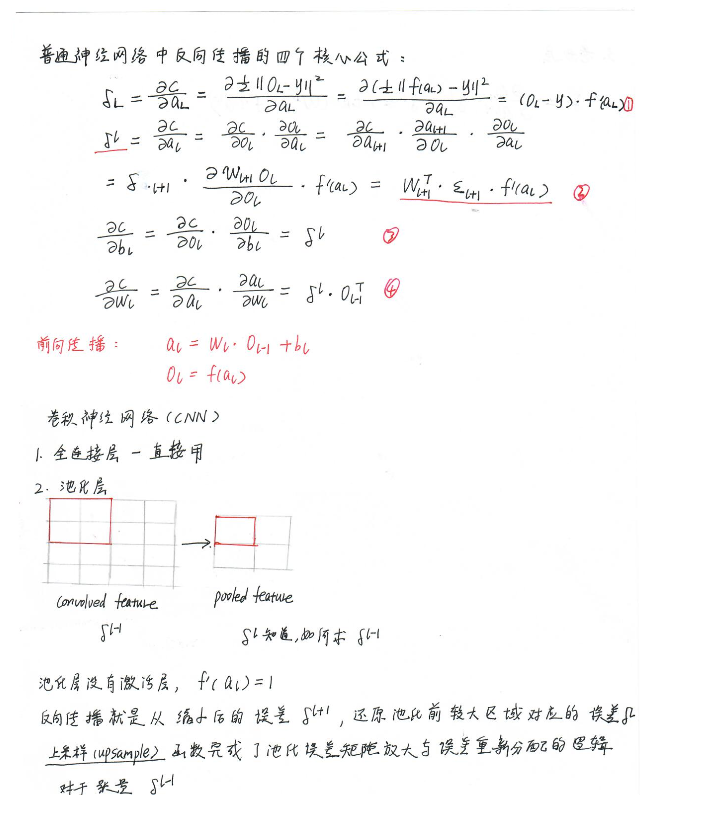 普通神经网络中反向传播的四个核心公式:
δL = ∂C/∂aL = ∂½||OL-y||²/∂aL = ∂(½||f(aL)-y||²/∂aL = (OL-y)·f'(aL) ①
δ^l = ∂C/∂al = ∂C/∂Ol · ∂Ol/∂al = ∂C/∂al+1 · ∂al+1/∂Ol · ∂Ol/∂al
= δ·l+1 · ∂Wl+1 Ol/∂Ol · f'(al) = W^T l+1 · Σl+1 · f'(al) ②
∂C/∂bl = ∂C/∂Ol · ∂Ol/∂bl = δ^l ③
∂C/∂Wl = ∂C/∂al · ∂al/∂Wl = δ^l · O^T l-1 ④
前向传播: al = Wl · Ol-1 + bl
Ol = f(al)
卷积神经网络(CNN)
1. 全连接层 - 直接用
2. 池化层
convolved feature pooled feature
δ^l-1 δ^l 知道,如何求 δ^l-1
池化层没有激活层, f'(al)=1
反向传播就是从缩小后的误差 δ^l+1, 还原池化前较大区域对应的误差δl
上采样(upsample) 函数完成了池化误差矩阵放大与误差重新分配的逻辑
对于张量 δ^l-1